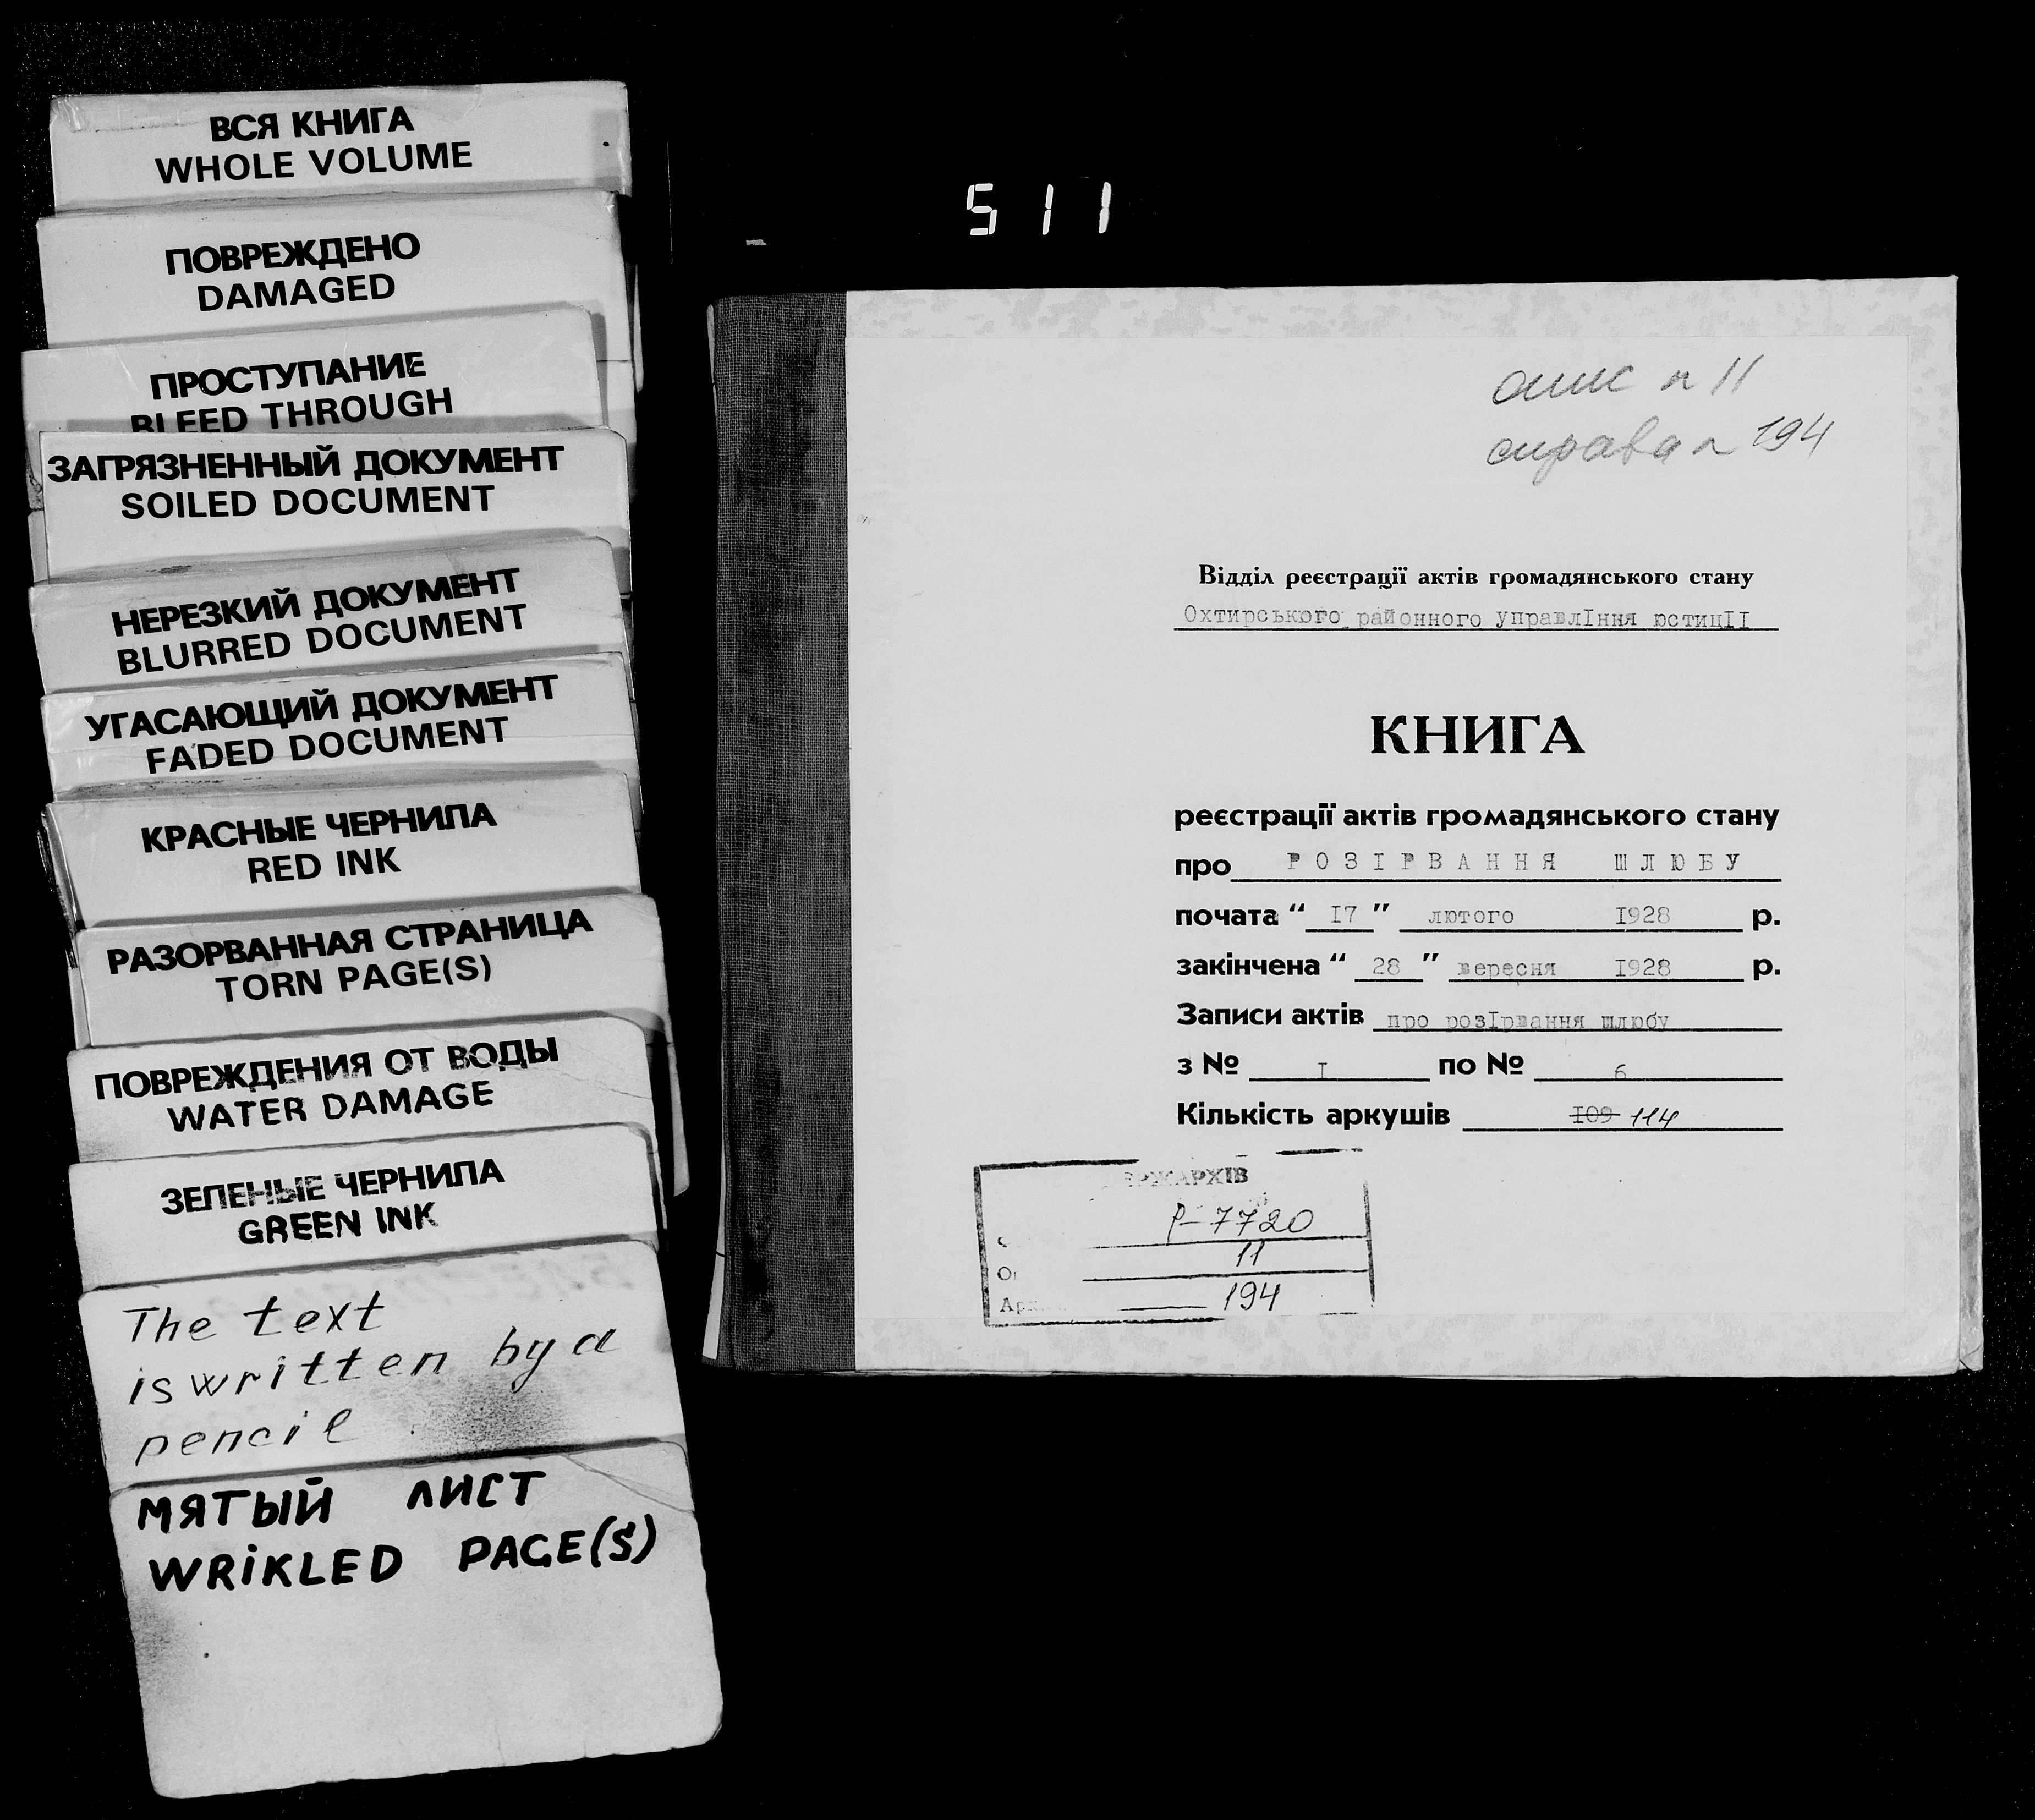 ВСЯ КНИГА
WHOLE VOLUME
ПОВРЕЖДЕНО
DAMAGED
ПРОСТУПАНИЕ
BLEED THROUGH
ЗАГРЯЗНЕННЫЙ ДОКУМЕНТ
SOILED DOCUMENT
НЕРЕЗКИЙ ДОКУМЕНТ
BLURRED DOCUMENT
УГАСАЮЩИЙ ДОКУМЕНТ
FADED DOCUMENT
КРАСНЫЕ ЧЕРНИЛА
RED INK
РАЗОРВАННАЯ СТРАНИЦА
TORN PAGE(S)
ПОВРЕЖДЕНИЯ ОТ ВОДЫ
WATER DAMAGE
ЗЕЛЕНЫЕ ЧЕРНИЛА
GREEN INK
The text
is written by a
pencil
МЯТЫЙ ЛИСТ
WRiKLED PAGE(S)
511
опис n 11
справа n 194
Відділ реєстрації актів громадянського стану
Охтирського районного управлІння юстицІІ
КНИГА
реєстрації актів громадянського стану
про РОЗІРВАННЯ ШЛЮБУ
почата “ I7 ” лютого I928 р.
закінчена “ 28 ” вересня I928 р.
Записи актів про розІрвання шлюбу
з № I по № 6
Кількість аркушів I09 114
ЕРЖАРХІВ
Р-7720
11
194